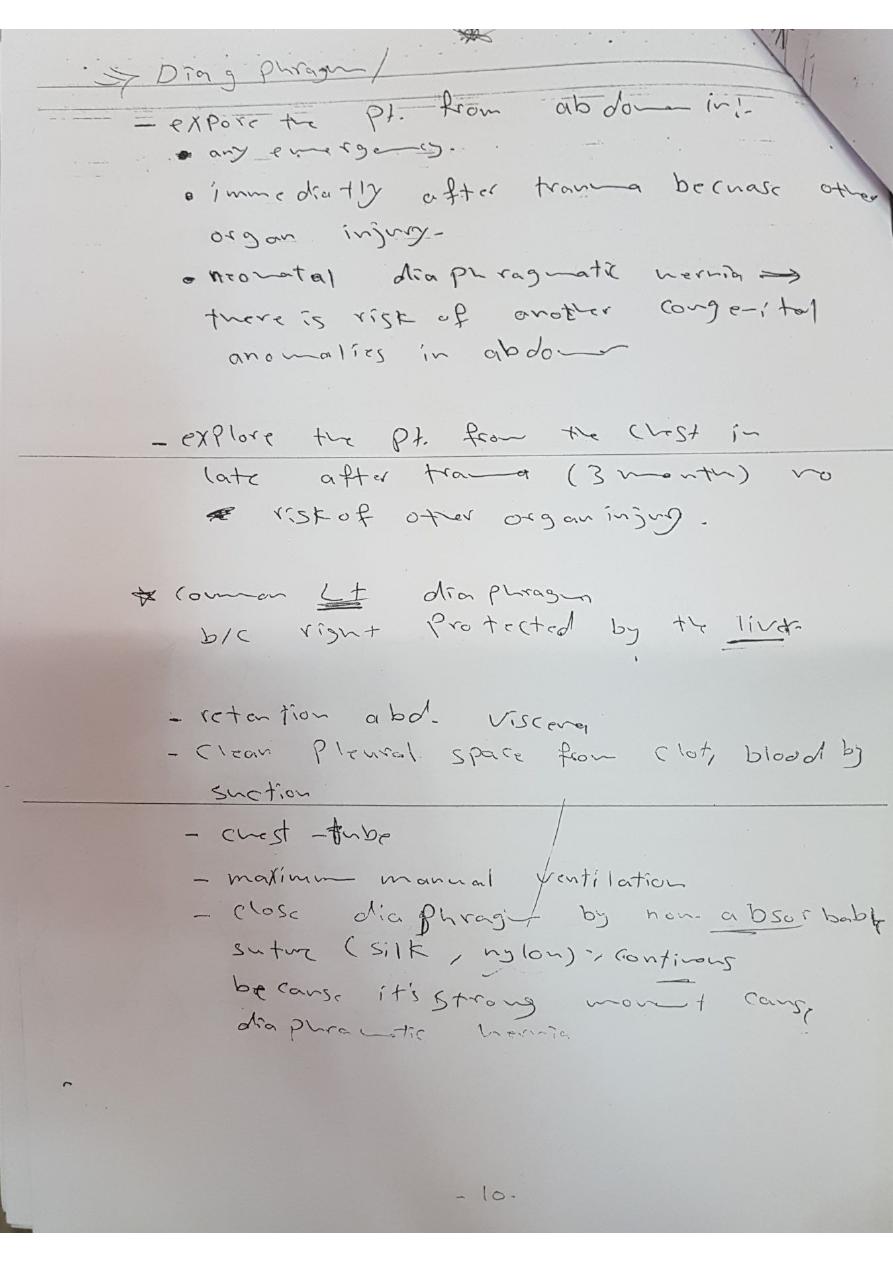 ⇒ Diagphragm/
- expore the pt. from abdomen in:-
• any emergency.
• immediatly after trauma becuase other
organ injury-
• neonatal diaphragmatic hernia →
there is risk of another congenital
anomalies in abdomen
- explore the pt. from the chest in
late after trauma (3 month) no
risk of other organ injury.
☆ common Lt diaphragm
b/c right protected by the liver
- retention abd. viscera
- clean pleural space from clot, blood by
suction
- chest -tube
- maximum manual ventilation
- close diaphragm by non-absorbable
suture (silk, nylon), continous
because it's strong movment cause
diaphramatic hernia
- 10.